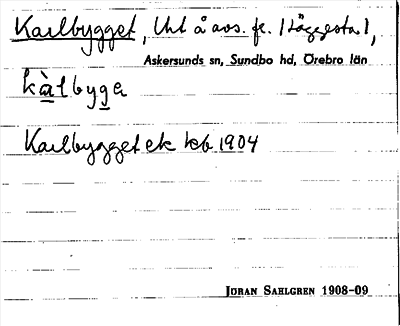 Karlbygget, Uht å avs. fr. (Läggesta),
Askersunds sn, Sundbo hd, Örebro län
kàlbyga
Karlbygget ek kb 1904
JÖRAN SAHLGREN 1908-09